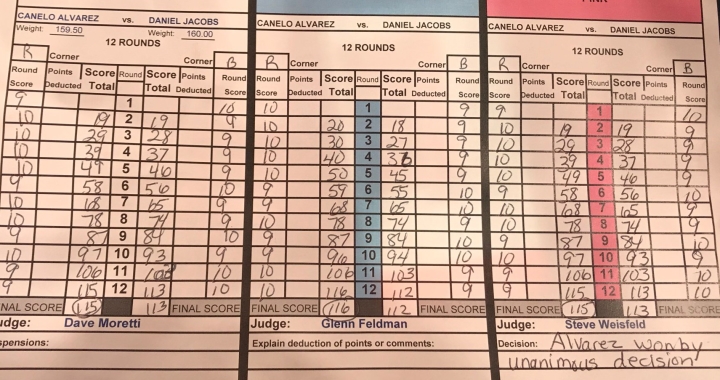 CANELO ALVAREZ vs. DANIEL JACOBS
Weight: 159.50 Weight: 160.00
12 ROUNDS
R Corner Corner B
Round Score Points Deducted Score Total Round Score Total Points Deducted Round Score
9 1 10
10 19 2 19 9
10 29 3 28 9
10 39 4 37 9
10 49 5 46 9
9 58 6 56 10
10 68 7 65 9
10 78 8 74 9
9 87 9 84 10
10 97 10 93 9
9 106 11 10
9 115 12 113 10
NAL SCORE 115 113 FINAL SCORE
udge: Dave Moretti
spensions:
CANELO ALVAREZ vs. DANIEL JACOBS
12 ROUNDS
R Corner Corner B
Round Score Points Deducted Score Total Round Score Total Points Deducted Round Score
10 1 9
10 20 2 18 9
10 30 3 27 9
10 40 4 36 9
10 50 5 45 9
9 59 6 55 10
9 68 7 65 10
10 78 8 74 9
9 87 9 84 10
9 96 10 94 10
10 106 11 103 9
10 116 12 112 9
FINAL SCORE 116 112 FINAL SCORE
Judge: Glenn Feldman
Explain deduction of points or comments:
CANELO ALVAREZ vs. DANIEL JACOBS
12 ROUNDS
R Corner Corner B
Round Score Points Deducted Score Total Round Score Total Points Deducted Round Score
9 1 10
10 19 2 19 9
10 29 3 28 9
10 39 4 37 9
10 49 5 46 9
9 58 6 56 10
10 68 7 65 9
10 78 8 74 9
9 87 9 84 10
10 97 10 93 9
9 106 11 103 10
9 115 12 113 10
FINAL SCORE 115 113 FINAL SCORE
Judge: Steve Weisfeld
Decision: Alvarez won by
unanimous decision